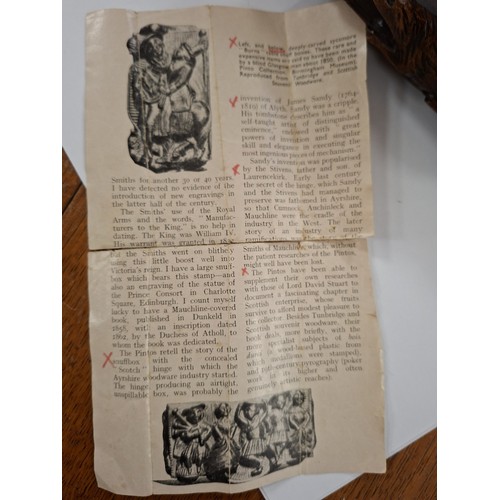 Smiths for another 30 or 40 years.
I have detected no evidence of the
introduction of new engravings in
the latter half of the century.
The Smiths' use of the Royal
Arms and the words, "Manufac-
turers to the King," is no help in
dating. The King was William IV.
His warrant was granted in
But the Smiths went on blithely
using this little boost well into
Victoria's reign. I have a large snuff-
box which bears this stamp—and
also an engraving of the statue of
the Prince Consort in Charlotte
Square, Edinburgh. I count myself
lucky to have a Mauchline-covered
book, published in Dunkeld in
1858, with an inscription dated
1862, by the Duchess of Atholl, to
whom the book was dedicated.
The Pintos retell the story of the
snuffbox with the concealed
"Scotch" hinge with which the
Ayrshire woodware industry started.
The hinge, producing an airtight,
unspillable box, was probably the
Left, and deeply-carved sycamore
Burns These rare and
expensive have been carved
by a blind man about 1850. (In the
Pinto Collection, Birmingham Museum).
Reproduced from Tunbridge and Scottish
Souvenir Woodware.
invention of James Sandy (1764-
1819) of Alyth. Sandy was a cripple.
His tombstone describes him as "a
self-taught artist of distinguished
eminence," endowed with "great
powers of invention and singular
skill and elegance in executing the
most ingenious pieces of mechanism."
Sandy's invention was popularised
by the Stivens, father and son, of
Laurencekirk. Early last century
the secret of the hinge, which Sandy
and the Stivens had managed to
preserve was fathomed in Ayrshire,
so that Cumnock, Auchinleck and
Mauchline were the cradle of the
industry in the West. The later
story of an industry of many
ramifications
Smiths of Mauchline which, without
the patient researches of the Pintos,
might well have been lost.
The Pintos have been able to
supplement their own researches
with those of Lord David Stuart to
document a fascinating chapter in
Scottish enterprise, whose fruits
survive to afford modest pleasure to
the collector. Besides Tunbridge and
Scottish souvenir woodware, their
book deals, more briefly, with the
two specialist subjects of bois
durci (a wood-based plastic from
which medallions were stamped),
and 19th-century pyrography (poker
work at its higher and often
genuinely artistic reaches).